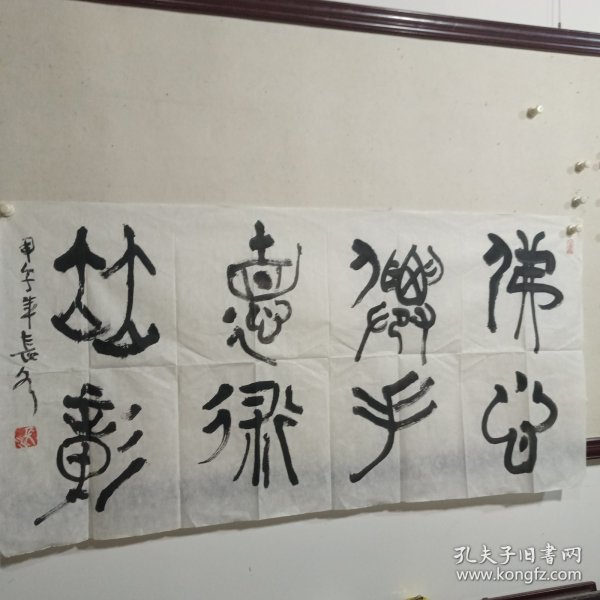 佛心
僊手
悳術
竝彰
甲午年長
孔夫子旧书网
www.kongfz.com